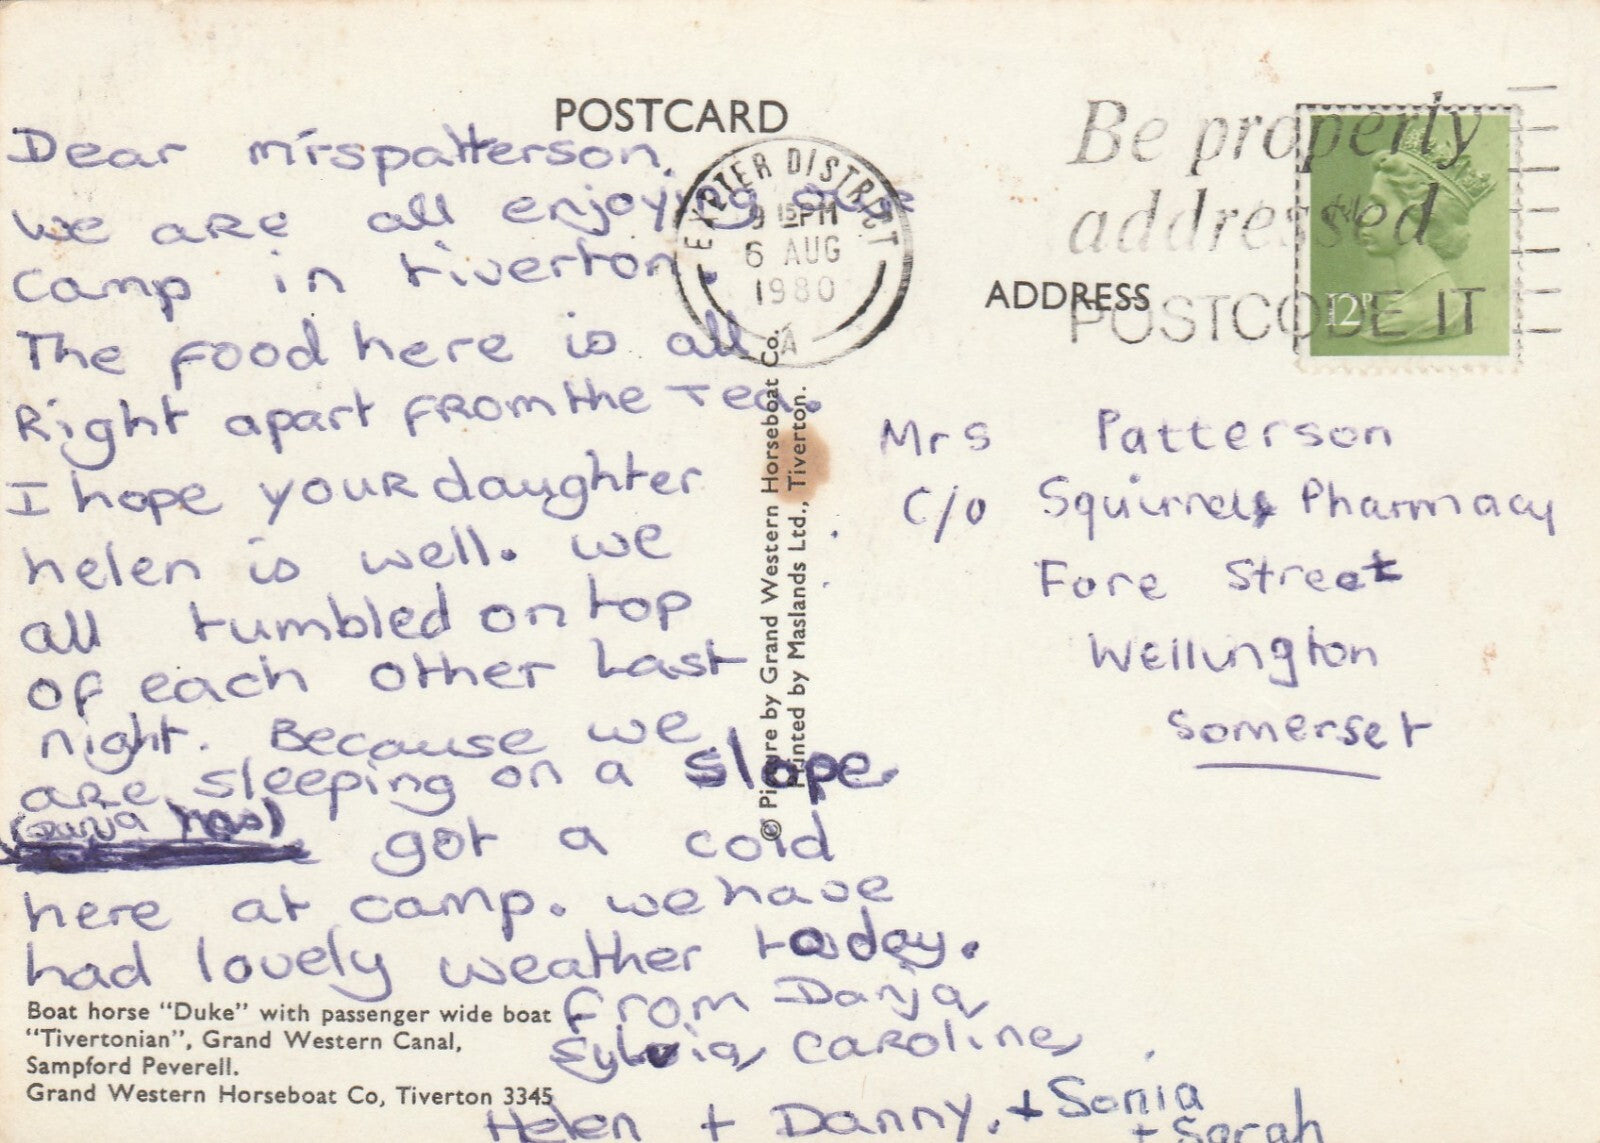 POSTCARD
Dear mrspatterson.
we are all enjoying our
camp in tiverton.
The food here is all
Right apart from the Tea.
I hope your daughter
helen is well. we
all tumbled on top
of each other Last
night. Because we
are sleeping on a slope.
(Danja has) got a cold
here at camp. we have
had lovely weather today.
from Danja,
Sylvia, Caroline,
Helen + Danny. + Sonia
+ Sarah
Boat horse "Duke" with passenger wide boat
"Tivertonian", Grand Western Canal,
Sampford Peverell.
Grand Western Horseboat Co, Tiverton 3345
© Picture by Grand Western Horseboat Co.
Printed by Maslands Ltd., Tiverton.
EXETER DISTRICT
9 15PM
6 AUG
1980
A
Be properly
addressed
POSTCODE IT
12P
ADDRESS
Mrs Patterson
C/o Squirrels Pharmacy
Fore Street
Wellington
Somerset